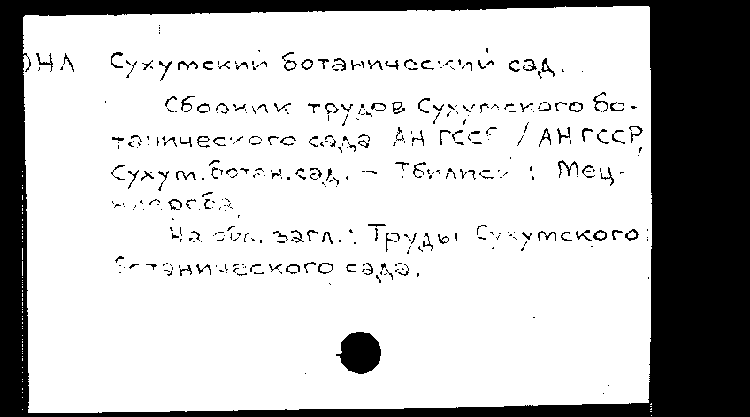 ОНЛ Сухумский ботанический сад.
Сборник трудов Сухумского бо-
танического сада АН ГССР / АН ГССР,
Сухум. ботан. сад. – Тбилиси : Мец-
ниереба,
На обл. загл.: Труды Сухумского
ботанического сада.